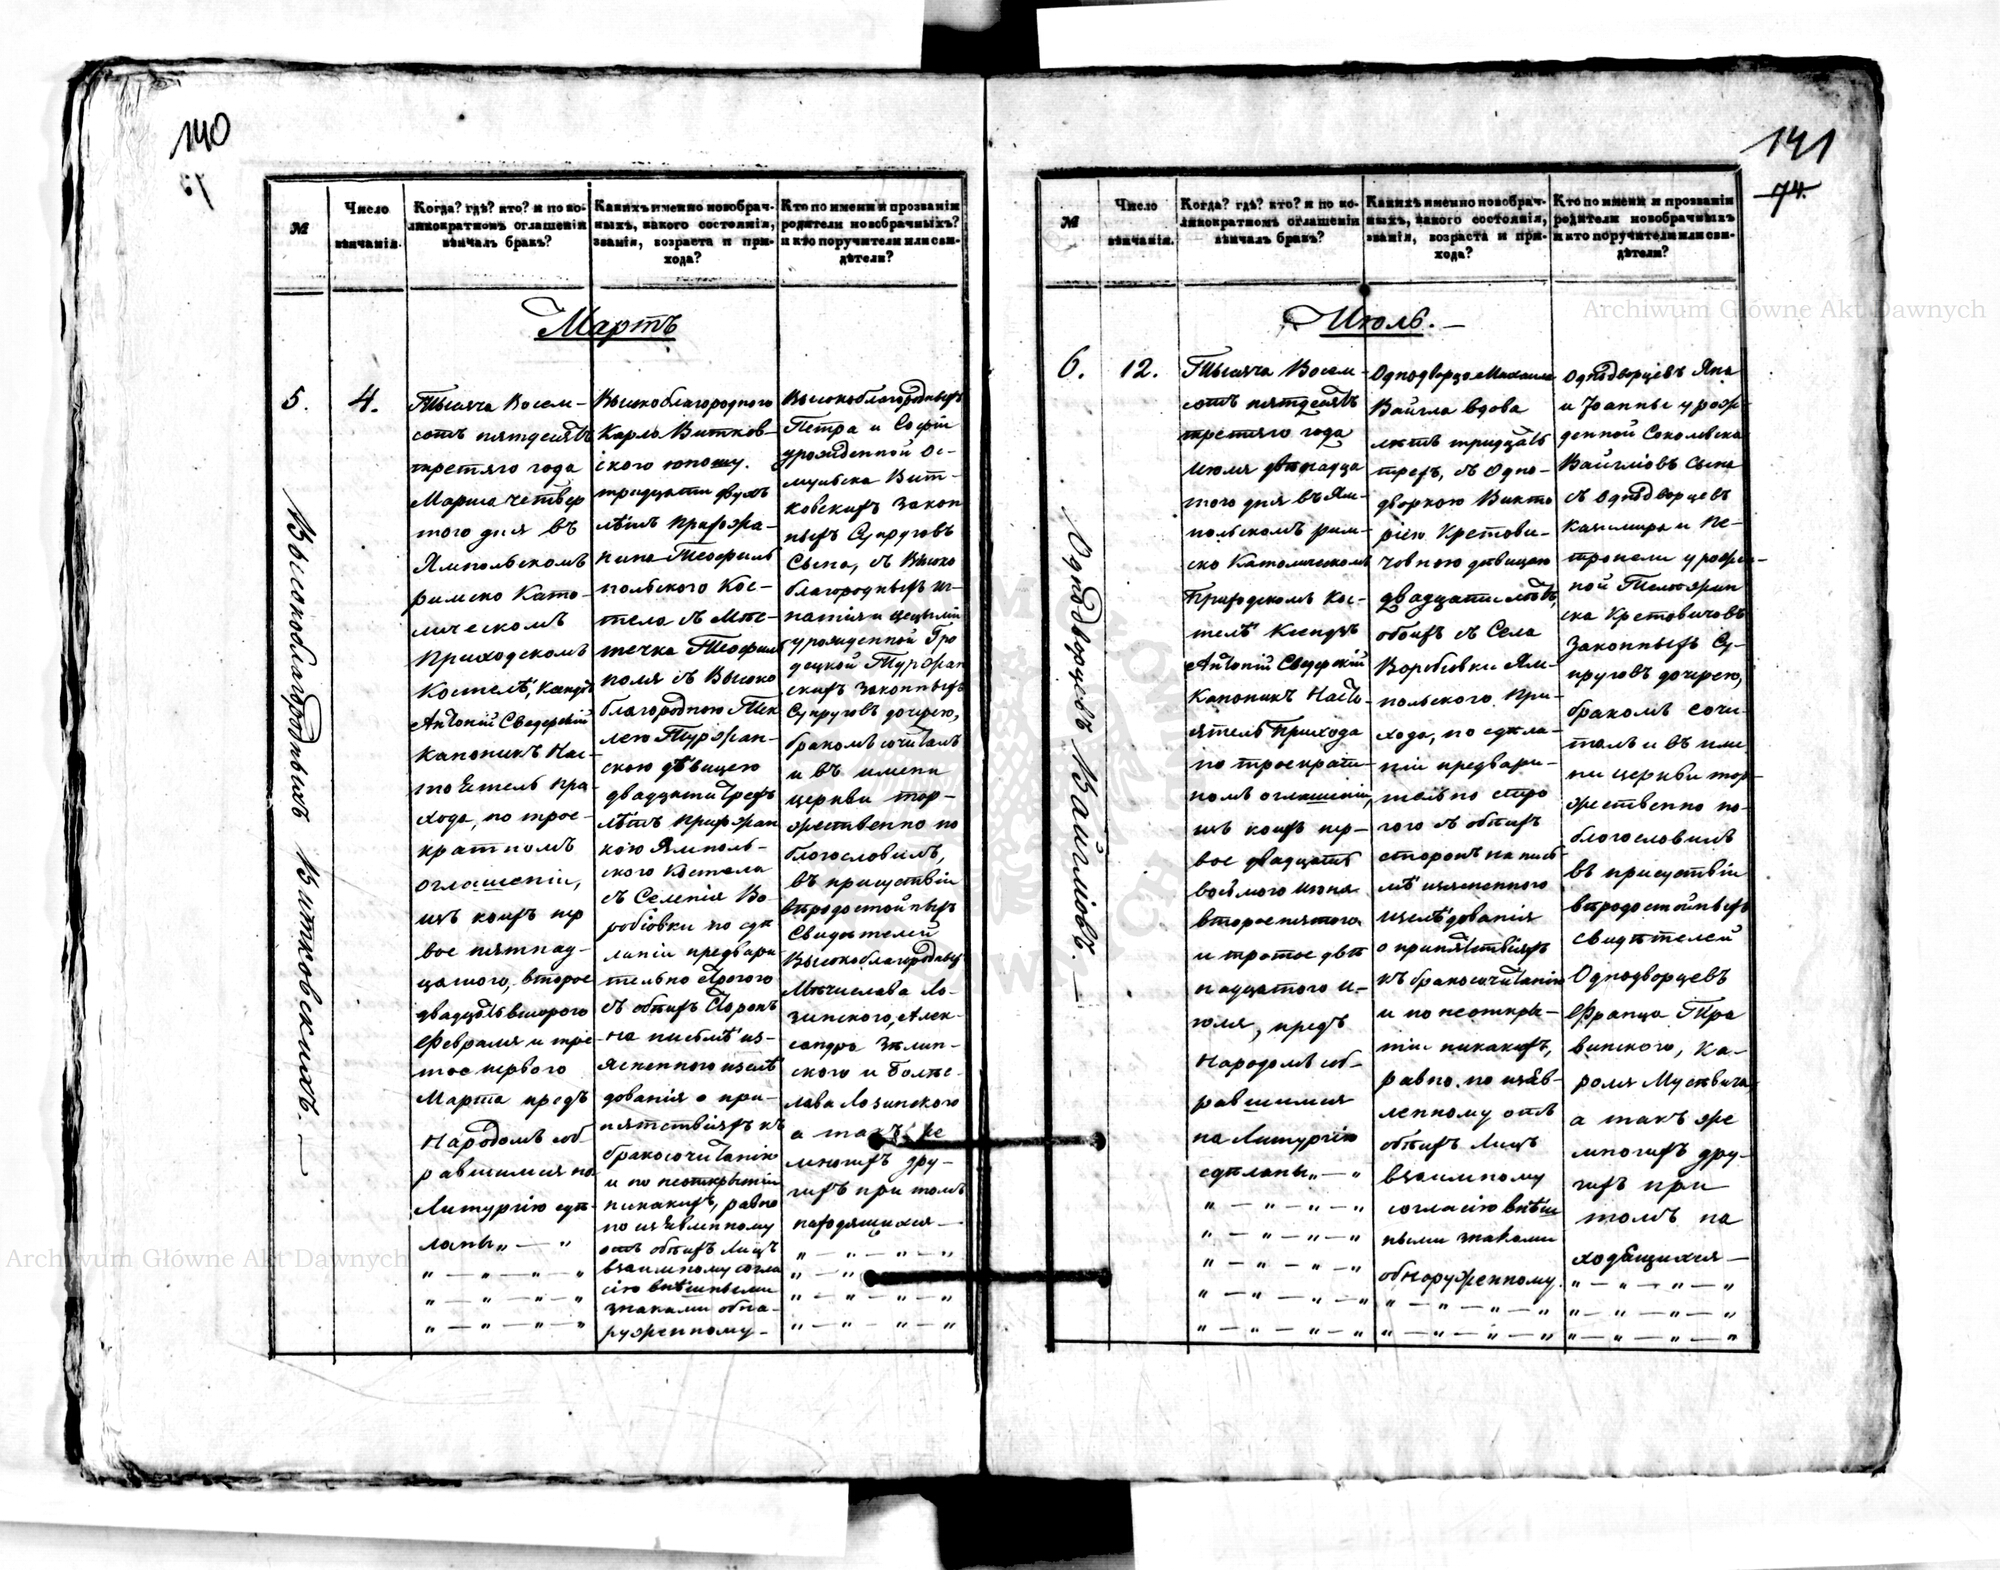 140
141
74.
№
Число
вѣнчанія.
Когда? гдѣ? кто? и по ко-
ликократномъ оглашеніи
вѣнчалъ бракъ?
Какихъ именно новобрач-
ныхъ, какого состоянія,
званія, возраста и при-
хода?
Кто по имени и прозванія
родители новобрачныхъ?
и кто поручители или сви-
дѣтели?
Мартъ
5.
4.
Высокоблагородныхъ Витковскихъ. —
Тысяча Восем-
сотъ пятдесятъ
третяго года
Марта четвер
того дня въ
Ямпольскомъ
римско Като-
лическомъ
Приходскомъ
Костелѣ, Ксендзъ
Антоній Свидерскій
Каноникъ Нас-
тоятель При
хода, по трое-
кратномъ
оглашеніи,
изъ коихъ пер
вое пятнад-
цатого, второе
двадцать второго
Февраля и тре-
тое первого
Марта предъ
Народомъ соб
равшимся на
Литургію сдѣ-
ланы „ — „
„ — „ — „ — „
„ — „ — „ — „
„ — „ — „ — „
Высокоблагородного
Карла Витков-
ского юношу.
тридцати двухъ
лѣтъ Прихожа-
нина Теофиль
польского Кос-
тела съ Мѣс-
течка Теофиль
поля съ Высоко
благородною Тек
лею Туржан-
скою дѣвицею
двадцати трехъ
лѣтъ Прихожан
кою Ямполь-
ского Костела
съ Селенія Во-
робіовки по сдѣ
ланіи предвари
тельно строгого
съ обѣихъ сторонъ
на письмѣ из-
ясненного изслѣ
дованія о при-
пятствіяхъ къ
бракосочитанію
и по неоткрытіи
никакихъ, равно
по изъявленному
отъ обѣихъ лицъ
взаимному согла
сію внѣшными
знаками обна-
руженному —
Высокоблагородныхъ
Петра и Софіи
урожденной Ос-
мульска Вит-
ковскихъ закон
ныхъ Супруговъ
Сына, съ Высоко
благородныхъ Иг-
натія и Цецыліи
урожденной Гро
децкой Туржан
скихъ законныхъ
Супруговъ дочерею,
бракомъ сочиталъ
и въ имени
церкви тор-
жественно по
благословилъ,
въ присутствіи
вѣродостойныхъ
Свидѣтелей
Высокоблагородныхъ
Мѣчислава Ло-
зинского, Алек-
сандра Зѣлин-
ского и Болес-
лава Лозинского
а такъ же
многихъ дру-
гихъ при томъ
находящихся —
„ — „ — „ — „
„ — „
„ — „ — „ — „
„ — „ — „ — „
№
Число
вѣнчанія.
Когда? гдѣ? кто? и по ко-
ликократномъ оглашеніи
вѣнчалъ бракъ?
Какихъ именно новобрач-
ныхъ, какого состоянія,
званія, возраста и при-
хода?
Кто по имени и прозванія
родители новобрачныхъ
и кто поручители или сви-
дѣтели?
Июль. —
6.
12.
Однодворцевъ Вайгловъ. —
Тысяча Восем-
сотъ пятдесятъ
третяго года
Июля двѣнадца
того дня въ Ям-
польскомъ рим-
ско Католическомъ
Приходскомъ Кос-
телѣ Ксендзъ
Антоній Свидерскій
Каноникъ Насто-
ятель Прихода
по троекрат-
номъ оглашеніи,
изъ коихъ пер-
вое двадцать
восьмого Июня
второе пятого
и третое двѣ
надцатого И-
юля, предъ
Народомъ соб-
равшимся
на Литургію
сдѣланы „ — „
„ — „ — „ — „
„ — „ — „ — „
„ — „ — „ — „
„ — „ — „ — „
„ — „ — „ — „
Однодворца Михаила
Вайгла вдова
лѣтъ тридцать
трехъ, съ Одно-
дворкою Викто
ріею Кретови-
човною дѣвицею
двадцати лѣтъ,
обоихъ съ Села
Воробіовки Ям-
польского При-
хода, по сдѣла-
ніи предвари-
тельно стро
гого съ обѣихъ
сторонъ на пись-
мѣ изясненного
изслѣдованія
о припятствіяхъ
къ бракосочитанію
и по неоткры-
тіи никакихъ,
равно по изъяв-
ленному отъ
обѣихъ лицъ
взаимному
согласію внѣш
ными знаками
обнаруженному.
„ — „ — „ — „
„ — „ — „ — „
Однодворцевъ Яна
и Іоанны урож-
денной Соколвска
Вайгловъ сына
съ Однодворцевъ
Казимира и Пе-
тронели урожден-
ной Тележин
ска Кретовичовъ
Законныхъ Су-
пруговъ дочерею,
бракомъ сочи-
талъ и въ име
ни церкви тор-
жественно по-
благословилъ
въ присутствіи
вѣродостойныхъ
свидѣтелей
Однодворцевъ
Франца Тра
винского, Ка-
роля Мусевича,
а такъ же
многихъ дру-
гихъ при
томъ на
ходящихся —
„ — „ — „ — „
„ — „ — „ — „
„ — „ — „ — „
Archiwum Główne Akt Dawnych
Archiwum Główne Akt Dawnych